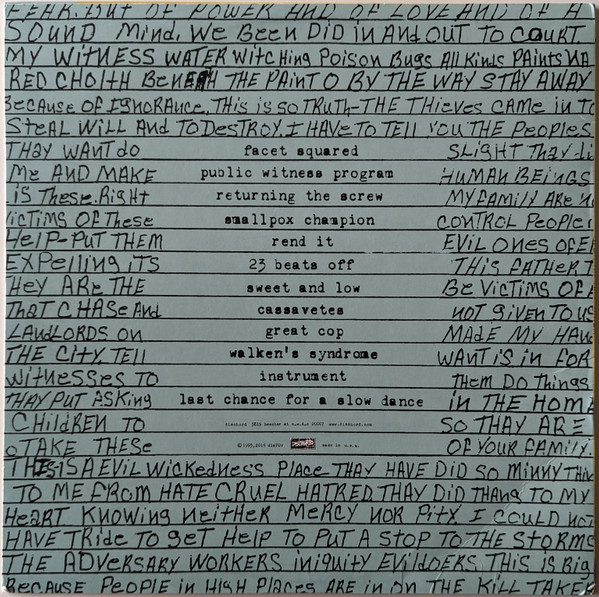 FEAR. BUT OF POWER AND OF LOVE AND OF A
SOUND MIND. WE BEEN DID IN AND OUT TO COURT
MY WITNESS WATER WITCHING POISON BUGS All KINDS PAINTS
RED CHOITH BENEATH THE PAINT O BY THE WAY STAY AWAY
BECAUSE OF IGNORANCE. THIS is so TRUTH-THE THIEVES CAME IN TO
STEAL WILL AND TO DESTROY. I HAVE TO TELL YOU THE PEOPLES
THAY WANT do facet squared SLIGHT THAY
ME AND MAKE public witness program HUMAN BEINGS
is THESE. RIGHT returning the screw MY FAMILY ARE
VICTIMS OF THESE smallpox champion CONTROL PEOPLE
HELP-PUT THEM rend it EVIL ONES
EXPELLING iTS 23 beats off THIS FATHER
HEY ARE THE sweet and low BE VICTIMS OF
THAT CHASE AND cassavetes NOT GIVEN TO US
LANDLORDS ON great cop MADE MY
THE CITY. TELL walken's syndrome WANT is in FOR
WITNESSES TO instrument THEM DO THINGS
THAY PUT ASKING last chance for a slow dance IN THE HOME
CHILDREN TO SO THAY ARE
TAKE THESE made in u.s.a. OF YOUR FAMILY.
THIS IS A EVIL WICKEDNESS PLACE THAY HAVE DID SO MINNY
TO ME FROM HATE CRUEL HATRED THAY DID THANG TO MY
HEART KNOWING NEITHER MERCY NOR PITY. I COULD NOT
HAVE TRIDE TO GET HELP TO PUT A STOP TO THE STORMS
THE ADVERSARY WORKERS INIQUITY EVILDOERS. THIS is BIG
BECAUSE PEOPLE IN HIGH PLACES ARE IN ON THE KILL TAKE